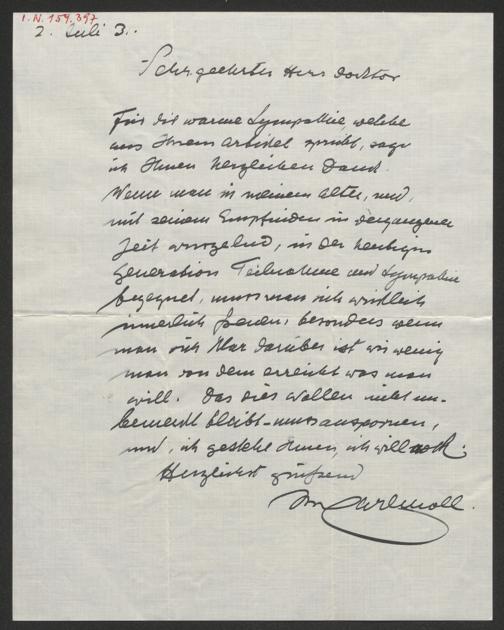 I.N. 159.397
2. Juli 3.
Sehr geehrter Herr Doktor
Für die warme Sympathie, welche
aus Ihrem Artikel spricht, sage
ich Ihnen herzlichen Dank.
Wenn man in meinem Alter, und,
mit seinem Empfinden in vergangener
Zeit wurzelnd, in der heutigen
Generation Teilnahme und Sympathie
begegnet, muss man sich wirklich
innerlich freuen, besonders wenn
man sich klar darüber ist wie wenig
man von dem erreicht was man
will. Das dies Wollen nicht un-
bemerkt bleibt - muss anspornen,
und, ich gestehe Ihnen, ich will noch.
Herzlichst grüssend
Ihr Carl Moll.